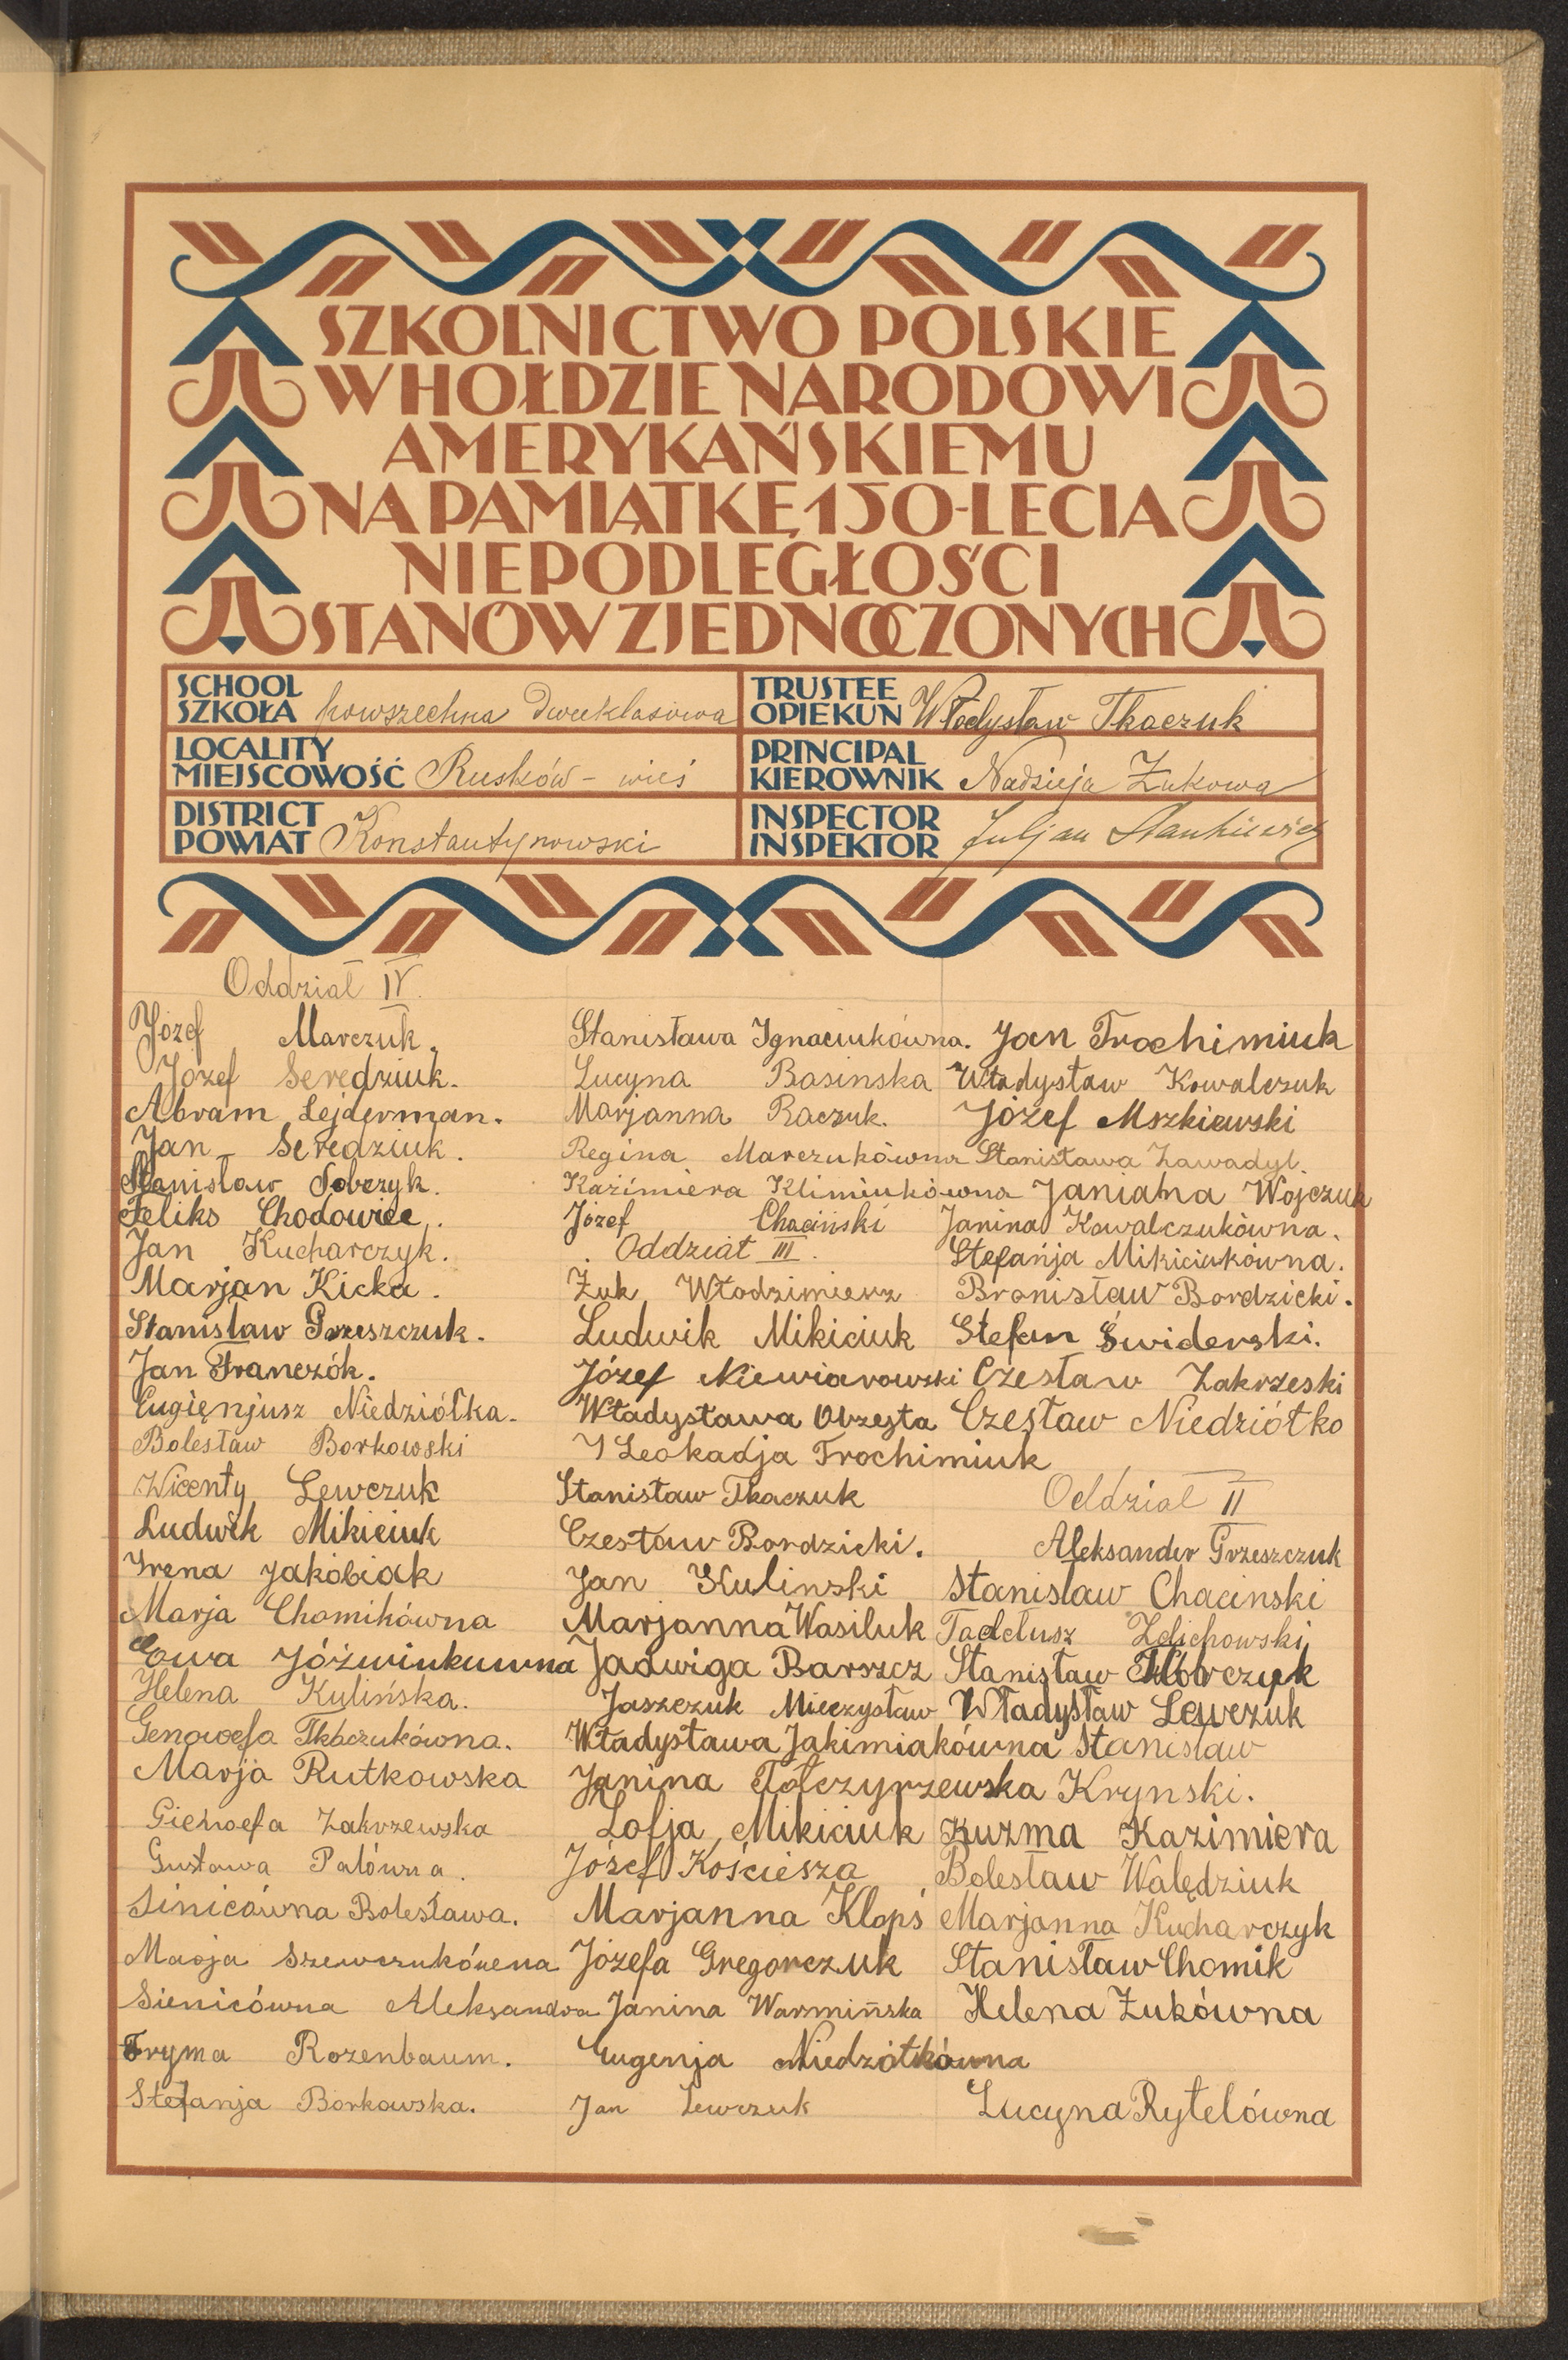 SZKOLNICTWO POLSKIE
W HOŁDZIE NARODOWI
AMERYKAŃSKIEMU
NA PAMIĄTKĘ 150-LECIA
NIEPODLEGŁOŚCI
STANÓW ZJEDNOCZONYCH
SCHOOL
SZKOŁA powszechna dwuklasowa
TRUSTEE
OPIEKUN Władysław Tkaczuk
LOCALITY
MIEJSCOWOŚĆ Rusków - wieś
PRINCIPAL
KIEROWNIK Nadzieja Żukowa
DISTRICT
POWIAT Konstantynowski
INSPECTOR
INSPEKTOR Juljan Stankiewicz
Oddział IV.
Józef Marczuk.
Józef Seredziuk.
Abram Lejderman.
Jan Seredziuk.
Stanisław Sobczyk.
Feliks Chodowiec.
Jan Kucharczyk.
Marjan Kicka.
Stanisław Grzeszczuk.
Jan Franczók.
Eugięnjusz Niedziółka.
Bolesław Borkowski
Wicenty Lewczuk
Ludwik Mikiciuk
Irena Jakóbiak
Marja Chomikówna
Ewa Jóźwiukuwna
Helena Kulińska.
Genowefa Tkaczukówna.
Marja Rutkowska
Gienoefa Zakrzewska
Gustawa Palówna.
Sinicówna Bolesława.
Marja Szewczukówna
Sienicówna Aleksandra
Fryma Rozenbaum.
Stefanja Borkowska.
Stanisława Ignaciukówna.
Lucyna Basinska
Marjanna Raczuk.
Regina Marczukówna
Kazimiera Klimiukówna
Józef Chaciński
Oddział III.
Żuk Włodzimierz
Ludwik Mikiciuk
Józef Niewiarowski
Władysława Obzesta
Leokadja Trochimiuk
Stanisław Tkaczuk
Czesław Bordzicki.
Jan Kulinski
Marjanna Wasiluk
Jadwiga Barszcz
Jaszczuk Mieczysław
Władysława Jakimiakówna
Janina Tołczyrzewska
Zofja Mikiciuk
Józef Kościesza
Marjanna Klopś
Józefa Gregorczuk
Janina Warmińska
Eugenja Niedziołkówna
Jan Lewczuk
Jan Trochimiuk
Władysław Kowalczuk
Józef Mszkiewski
Stanisława Zawadyl.
Janina Wojczuk
Janina Kowalczukówna.
Stefańja Mikiciukówna.
Bronisław Bordzicki.
Stefan Świderski.
Czesław Zakrzeski
Czesław Niedziółko
Oddział II
Aleksander Grzeszczuk
Stanisław Chacinski
Tadeusz Zdichowski
Stanisław
Władysław Lewczuk
Stanisław
Krynski.
Kuzma Kazimiera
Bolesław Walędziuk
Marjanna Kucharczyk
Stanisław Chomik
Helena Żukówna
Lucyna Rytelówna